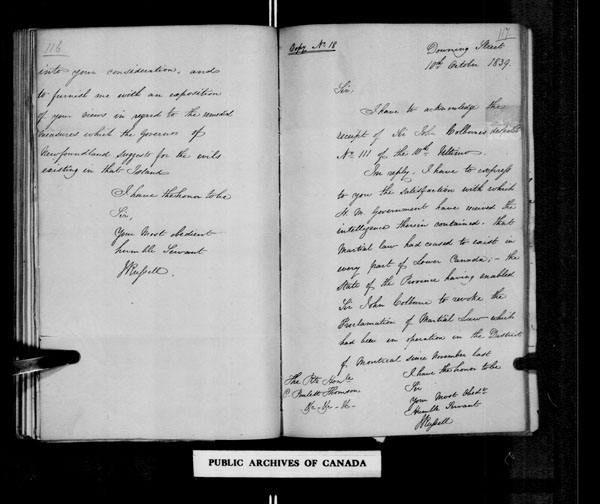 116
into your consideration, and
to furnish me with an exposition
of your views in regard to the remedial
measures which the Governor of
Newfoundland suggests for the evils
existing in that Island
I have the honor to be
Sir,
Your Most obedient
humble Servant
J Russell.
117
Copy No 18
Downing Street
10th October 1839.
Sir,
I have to acknowledge the
receipt of Sir John Colborne's despatch
No 111 of the 10th Ultimo.
In reply, I have to express
to you the satisfaction with which
H. M. Government have received the
intelligence therein contained. that
Martial law had ceased to exist in
every part of Lower Canada; - the
state of the Province having enabled
Sir John Colborne to revoke the
Proclamation of Martial Law which
had been in operation in the District
of Montreal since November last
I have the honor to be
Sir
Your Most Obedt
Humble Servant
J Russell
The Rt Honble
C Poulett Thomson
&c - &c - &c -
PUBLIC ARCHIVES OF CANADA